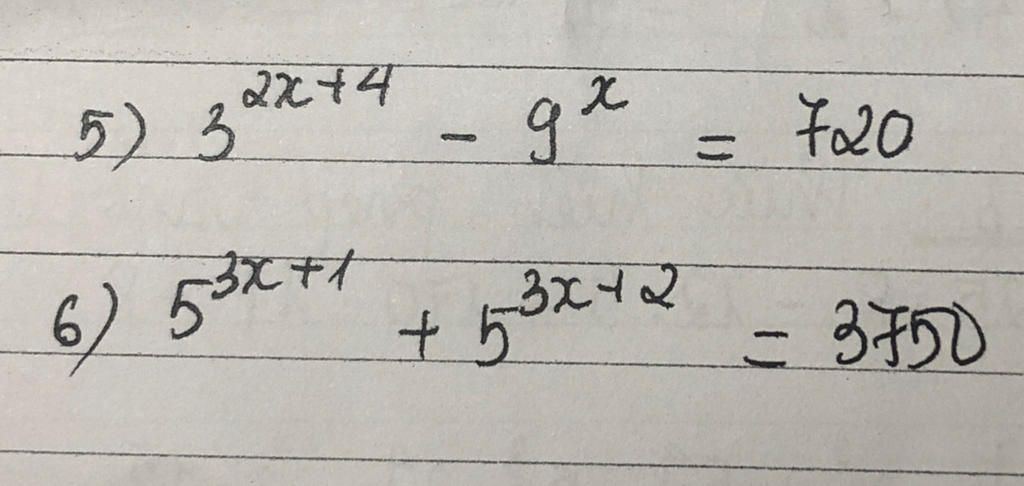 5) 3^{2x+4} - 9^x = 720
6) 5^{3x+1} + 5^{3x+2} = 3750